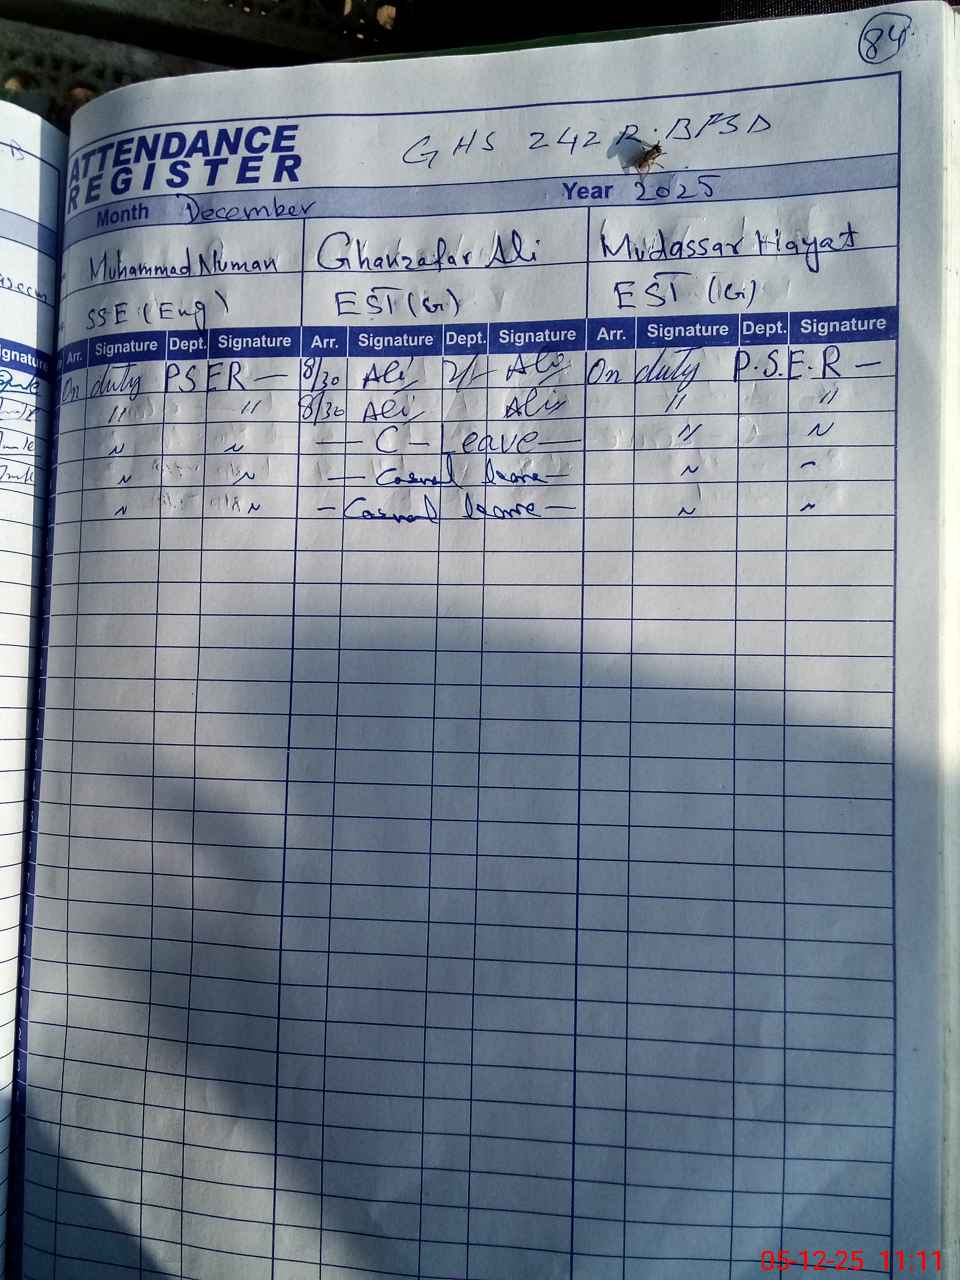 84
ATTENDANCE REGISTER
GHS 242 R.B FSD
Month December Year 2025
Muhammad Numan Ghanzafar Ali Mudassar Hayat
SSE (Eng) EST (G) EST (G)
Arr. Signature Dept. Signature Arr. Signature Dept. Signature Arr. Signature Dept. Signature
On duty PSER — 8/30 Ali 2/- Ali On duty P.S.E.R —
" " 8/30 Ali Ali " "
" " — C - Leave — " "
" " — Casual leave — " "
" " — Casual leave — " "
05-12-25 11:11